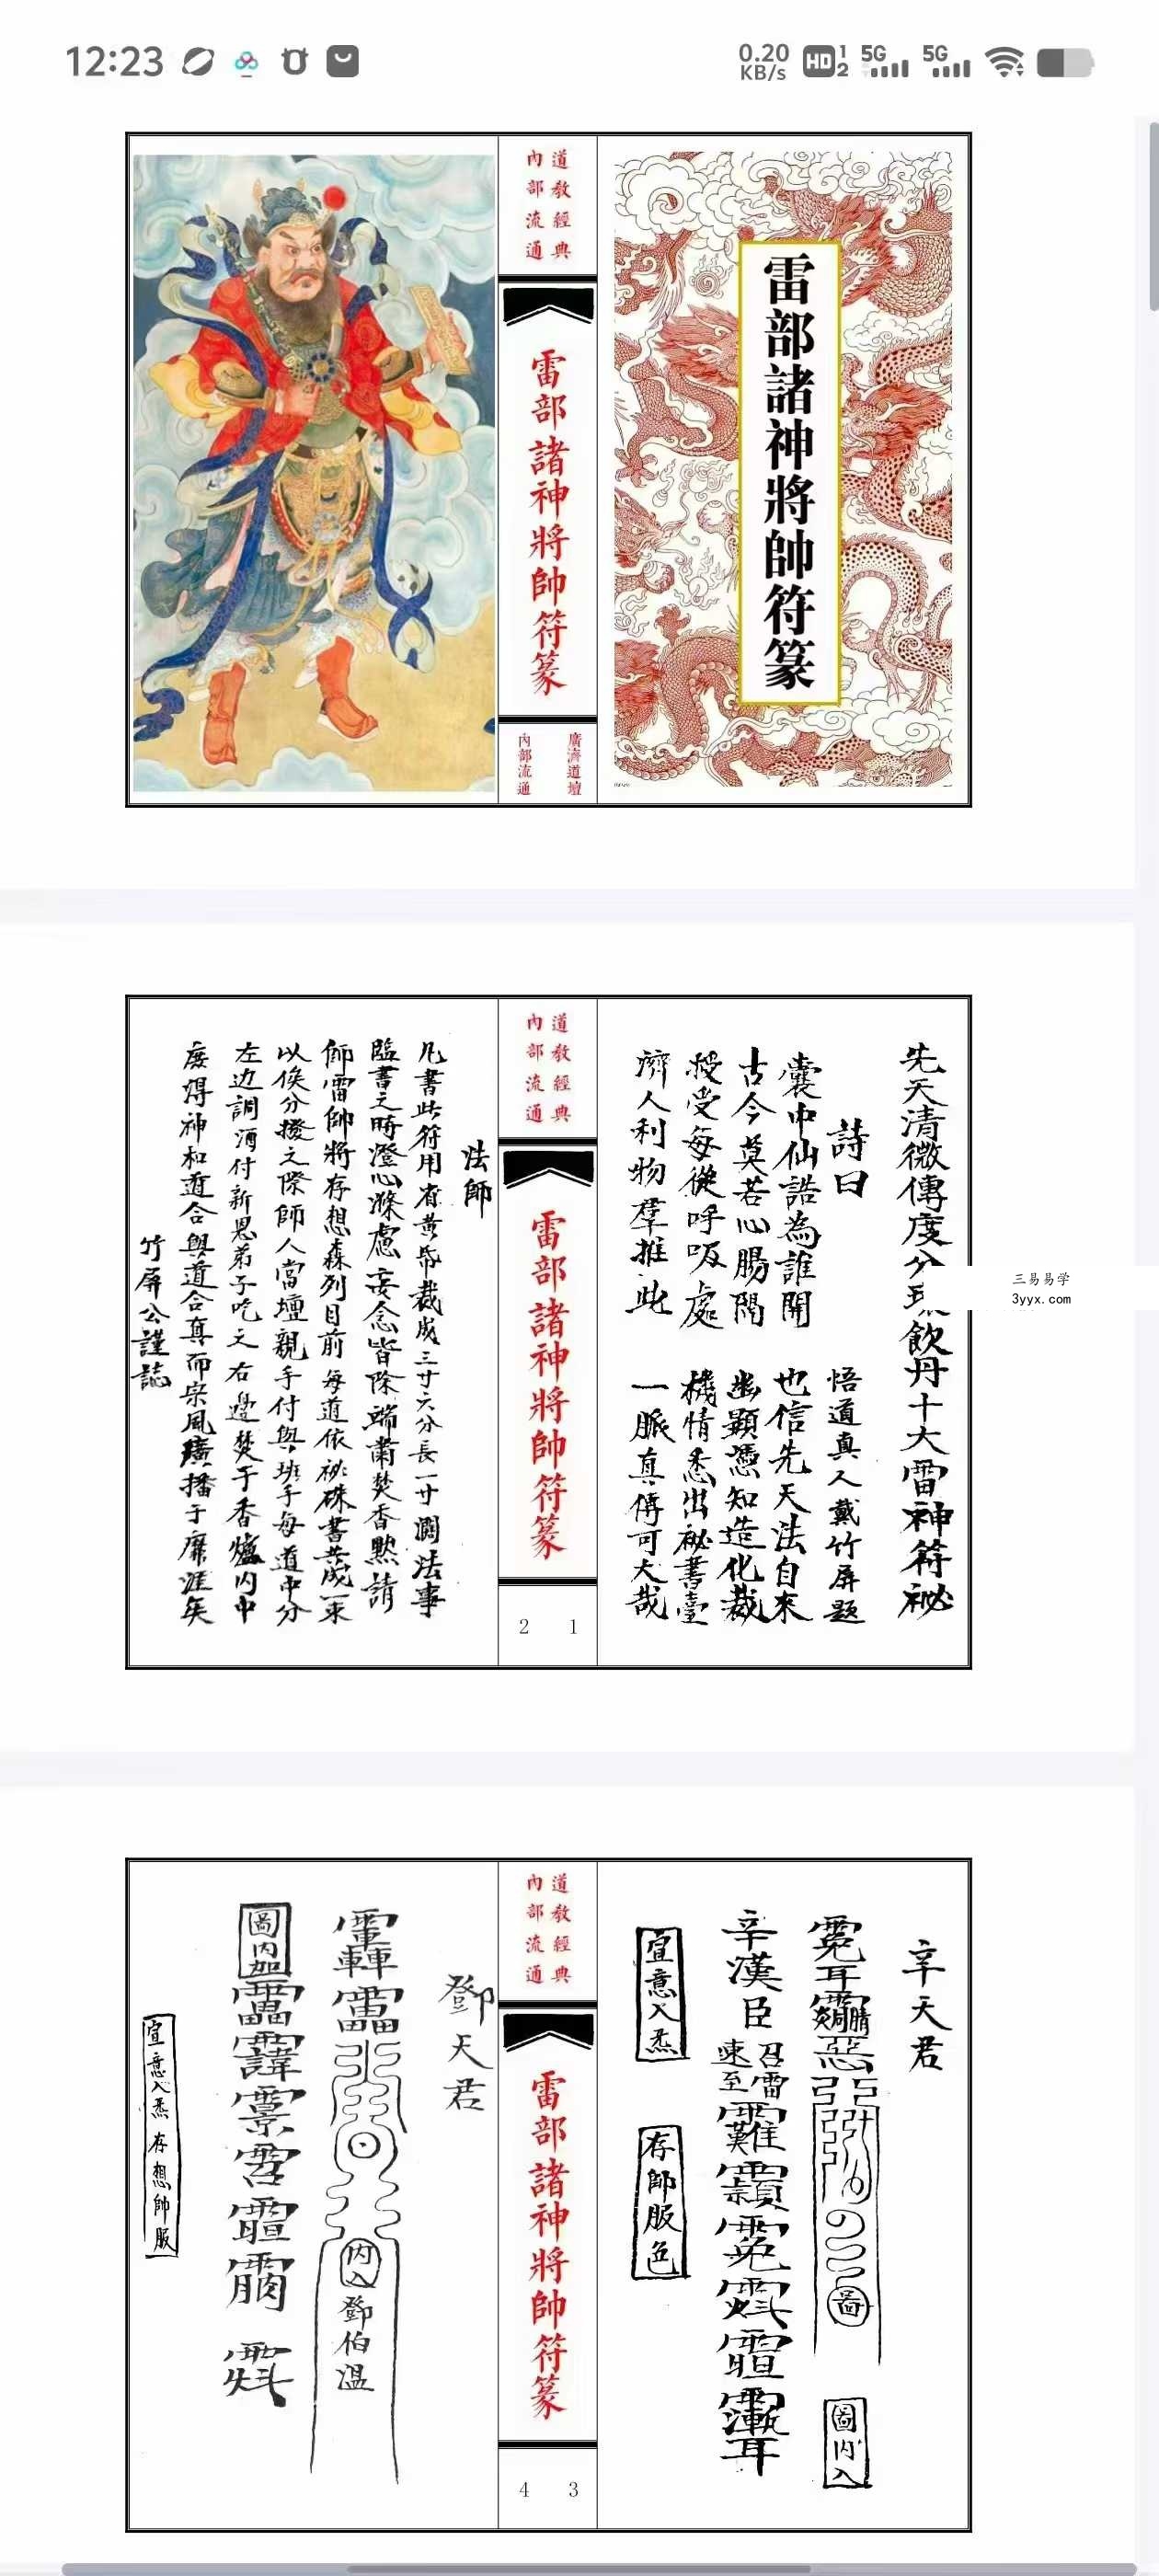 12:23
0.20 KB/s
HD 1 2
5G
5G
道教經典
內部流通
雷部諸神將帥符篆
廣濟道壇
內部流通
雷部諸神將帥符篆
先天清微傳度分
飲丹十大雷神符祕
詩曰
悟道真人戴竹屏題
囊中仙誥為誰開
也信先天法自來
古今莫若心腸闊
幽顯憑知造化裁
授受每從呼吸處
機情悉出祕書臺
濟人利物羣推此
一脈真傳可大哉
三易易学
3yyx.com
道教經典
內部流通
雷部諸神將帥符篆
1
2
法師
凡書此符用省黃帋裁成三寸六分長一寸濶法事
臨書之時澄心滌慮妄念皆除端肅焚香默請
師雷帥將存想森列目前每道依祕硃書成一束
以俟分撥之際師人當壇親手付與班手每道中分
左边調酒付新恩弟子吃之右邊焚于香爐内中
庶得神和道合與道合真而宗風廣播于靡涯矣
竹屏公謹誌
辛天君
圖
圖内入
辛漢臣
召雷
速至
宣意入炁
存帥服色
道教經典
內部流通
雷部諸神將帥符篆
3
4
鄧天君
内入
鄧伯温
圖内加
宣意入炁存想帥服